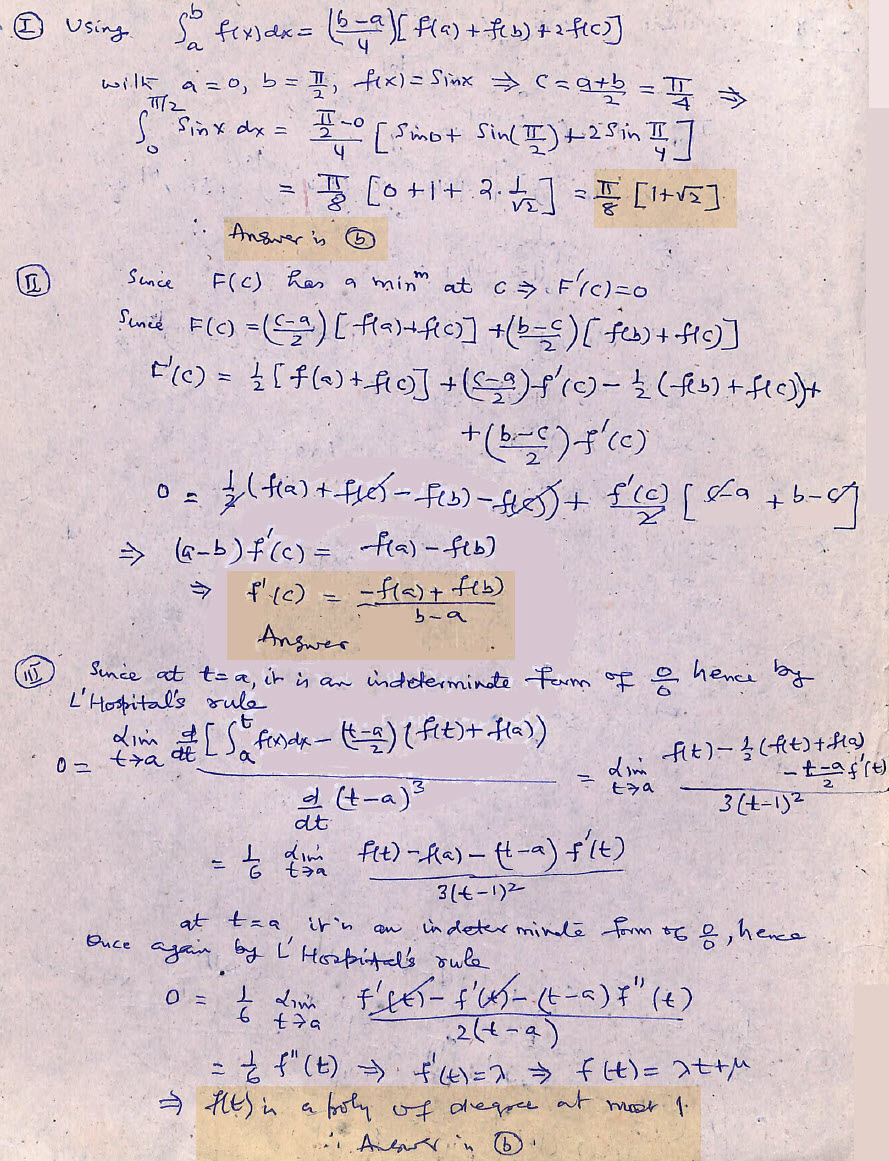 (I) Using ∫_a^b f(x)dx = ((b-a)/4)[f(a)+f(b)+2f(c)]
with a=0, b=π/2, f(x)=Sinx ⇒ c = (a+b)/2 = π/4 ⇒
∫_0^{π/2} Sinx dx = ((π/2-0)/4) [Sin0+ Sin(π/2)+2Sin π/4]
= π/8 [0+1+ 2·1/√2] = π/8 [1+√2]
∴ Answer is (b)
(II) Since F(c) has a min^m at c ⇒ F'(c)=0
Since F(c) =((c-a)/2)[f(a)+f(c)] +((b-c)/2)[f(b)+f(c)]
F'(c) = 1/2 [f(a)+f(c)] +((c-a)/2)f'(c) - 1/2 (f(b)+f(c))+
+((b-c)/2)f'(c)
0 = 1/2(f(a)+f(c)-f(b)-f(c))+ f'(c)/2 [c-a+b-c]
⇒ (a-b)f'(c) = f(a)-f(b)
⇒ f'(c) = (-f(a)+f(b))/(b-a)
Answer
(III) Since at t=a, it is an indeterminate form of 0/0 hence by
L'Hospital's rule
0 = Lim t→a d/dt [∫_a^t f(x)dx - ((t-a)/2)(f(t)+f(a))) / d/dt (t-a)^3 = Lim t→a (f(t)-1/2(f(t)+f(a) - (t-a)/2 f'(t)) / 3(t-1)^2
= 1/6 Lim t→a (f(t)-f(a)-(t-a)f'(t)) / 3(t-1)^2
at t=a it is an indeterminate form of 0/0, hence
Once again by L'Hospital's rule
0 = 1/6 Lim t→a (f'(t)-f'(t)-(t-a)f''(t)) / 2(t-a)
= 1/6 f''(t) ⇒ f'(t)=λ ⇒ f(t)=λt+μ
⇒ f(t) is a poly of degree at most 1.
∴ Answer is (b).